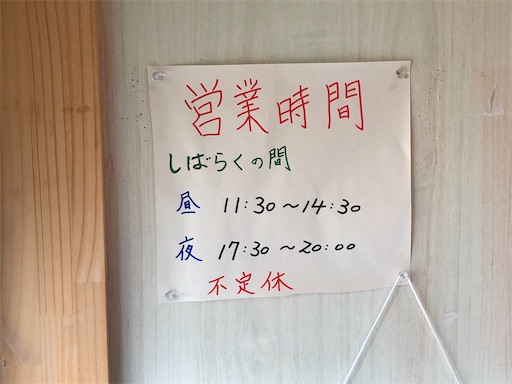 営業時間
しばらくの間
昼 11:30～14:30
夜 17:30～20:00
不定休